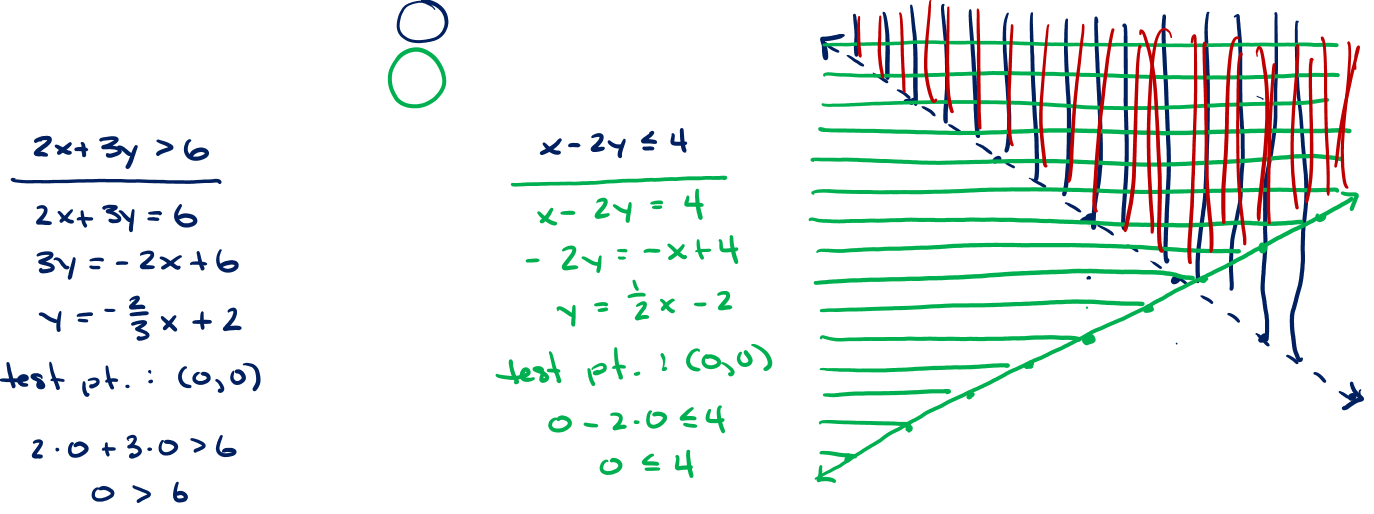 2x + 3y > 6
2x + 3y = 6
3y = - 2x + 6
y = - 2/3 x + 2
test pt. : (0,0)
2 · 0 + 3 · 0 > 6
0 > 6
x - 2y ≤ 4
x - 2y = 4
- 2y = - x + 4
y = 1/2 x - 2
test pt. : (0,0)
0 - 2 · 0 ≤ 4
0 ≤ 4